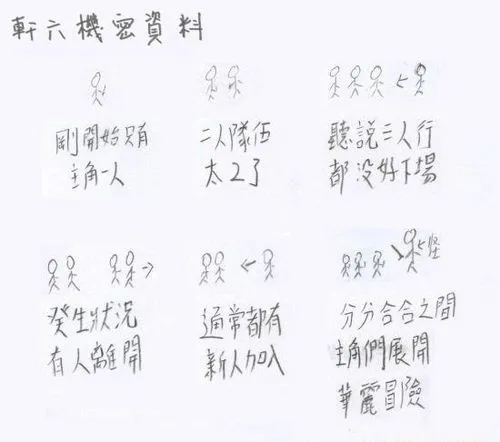 軒六機密資料
剛開始只有
主角一人
二人隊伍
太2了
聽說三人行
都没好下場
發生狀况
有人離開
通常都有
新人加入
怪
分分合合之間
主角們展開
華麗冒險